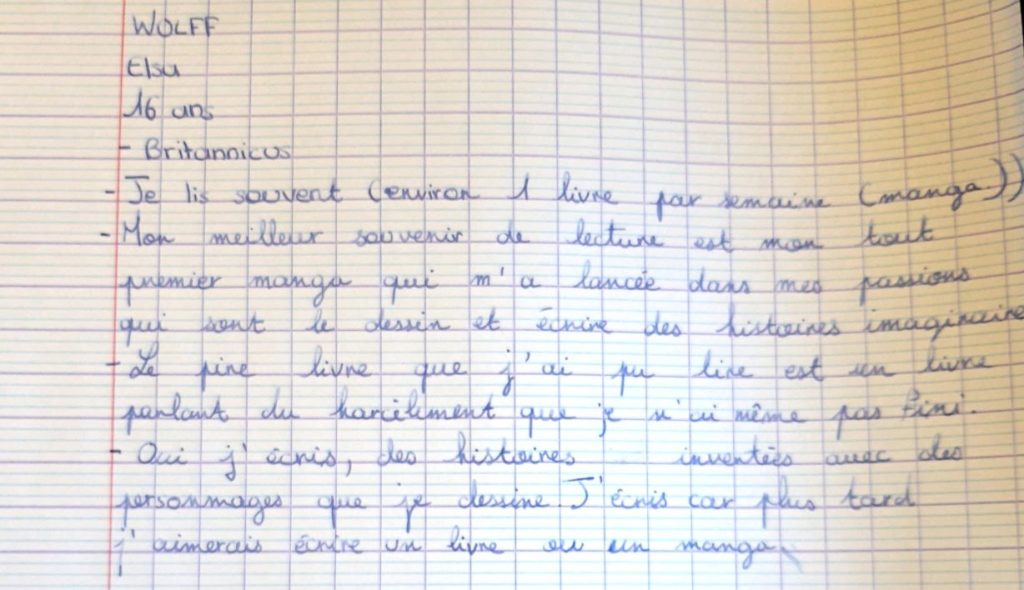 WOLFF
Elsa
16 ans
- Britannicus
- Je lis souvent (environ 1 livre par semaine (manga))
- Mon meilleur souvenir de lecture est mon tout
premier manga qui m'a lancée dans mes passions
qui sont le dessin et écrire des histoires imaginaire
- Le pire livre que j'ai pu lire est un livre
parlant du harcèlement que je n'ai même pas fini.
- Oui j'écris, des histoires inventées avec des
personnages que je dessine. J'écris car plus tard
j'aimerais écrire un livre ou un manga.